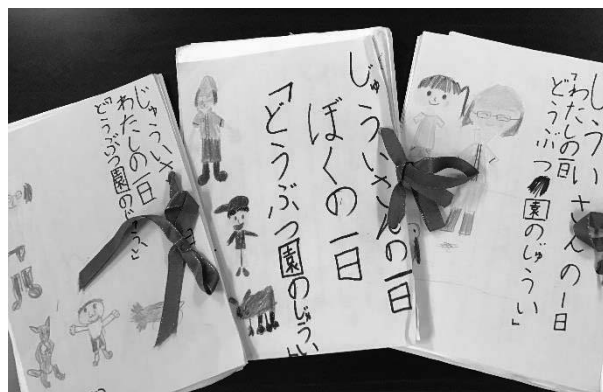 じゅういさ
わたしの一日
「どうぶつ園のじゅうい」
じゅういさんの一日
ぼくの一日
「どうぶつ園のじゅうい」
じゅういさんの一日
「わたしの一日
どうぶつ園のじゅうい」